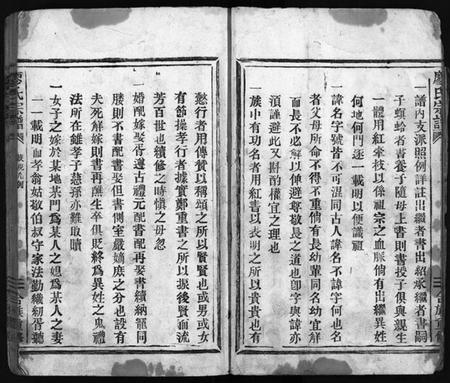 廖氏宗譜
一譜內支派照例詳註出繼者書出紹承繼者書嗣
子螟蛉者書養子隨母上書則書授子俱與親生
一體用紅牽枝以係祖宗之血脈倘有出繼異姓
何地何門逐一載明以便識祖
一諱名字號皆不可混同古人諱名不諱字何也名
者父母所命不得不重倘有長幼輩同名幼宜解
大其不必解以俾避尊敬長之道也卽字與諱亦
須謹避此又斟酌權宜之理也
一族中有功名者用紅書以表明之所以貴貴也有
懿行者用傳贊以稱頌之所以賢賢也或男或女
有節操孝行者據實鄭重書之所以振後賢而流
芳百世也續修之時慎之毋忽
一婚配嫁娶皆遵古禮元配書配再娶書續納寵同
媵則不書配書娶但書側室嚴嫡庶之分也設有
夫死解嫁則書再醮生卒俱貶終為異姓之鬼禮
法所在雖孝子慈孫亦難取贖
一女子之嫁於某地某門為某人之媳為某人之妻
一一載明而孝翁姑敬伯叔守家法勤織紉胥聽
廖氏宗譜
合族重修